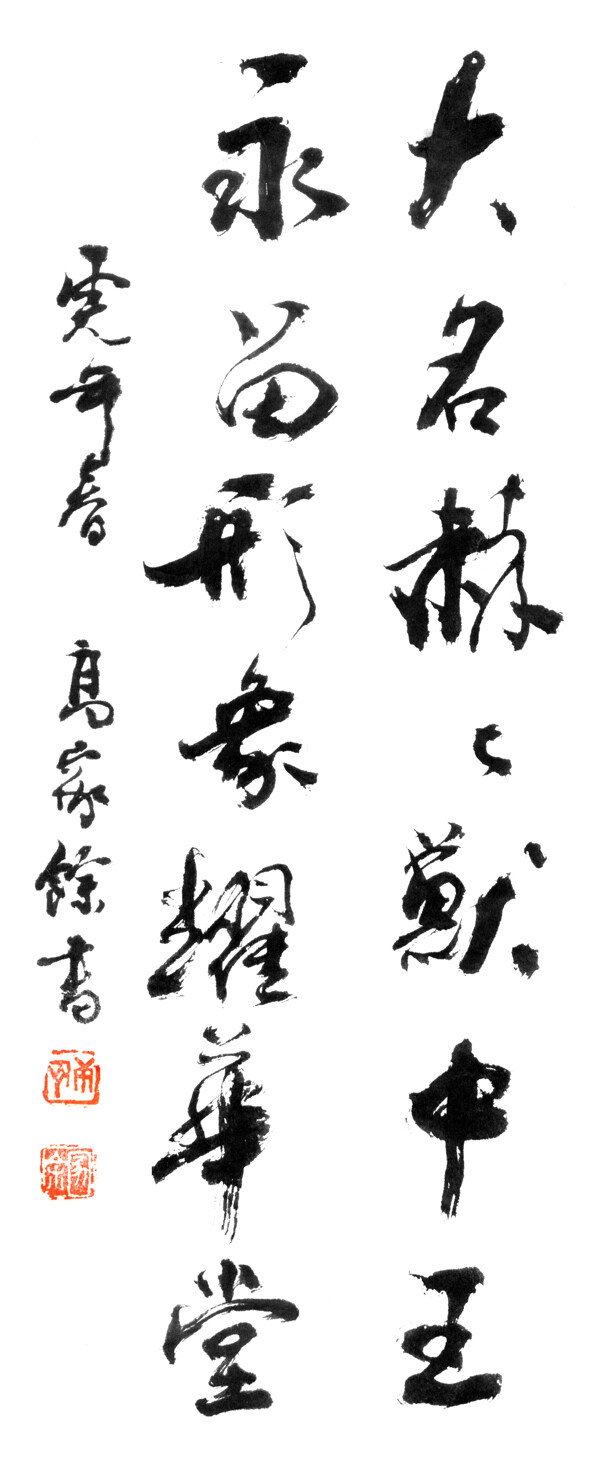 大名赫〻獸中王
永留形象耀華堂
虎年春 高家餘書